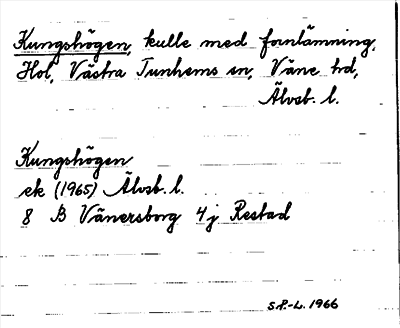 Kungshögen, kulle med fornlämning,
Hol, Västra Tunhems sn, Väne hd,
Älvsb. l.
Kungshögen
ek (1965) Älvsb. l.
8 B Vänersborg 4j Restad
S.P.-L. 1966